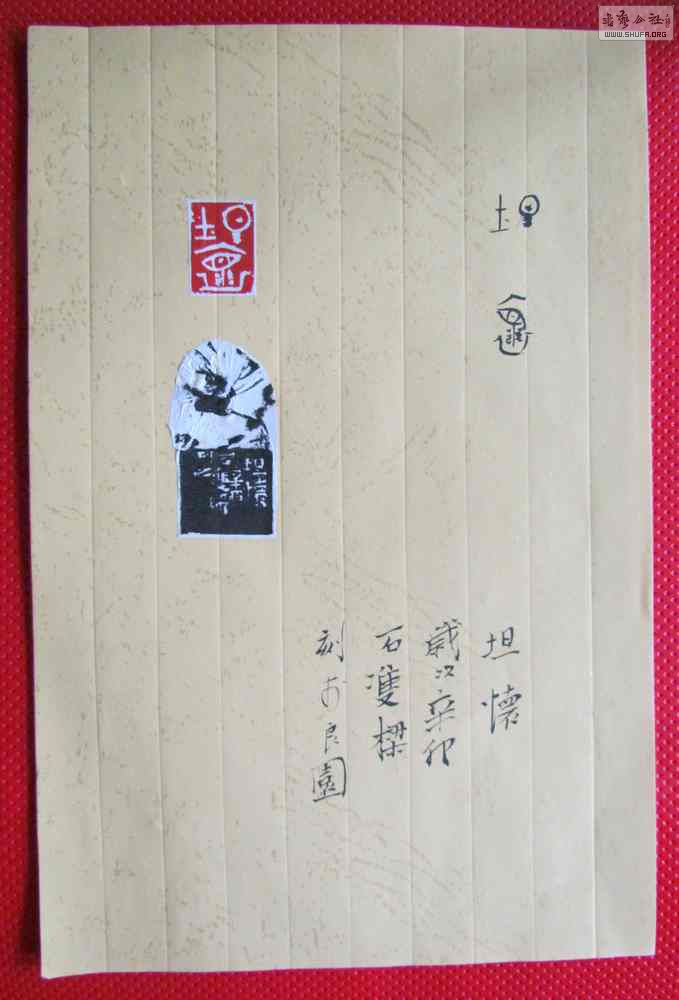 坦
懷
坦懷
歲次辛卯
石雙樑
刻於良園
书艺公社
WWW.SHUFA.ORG